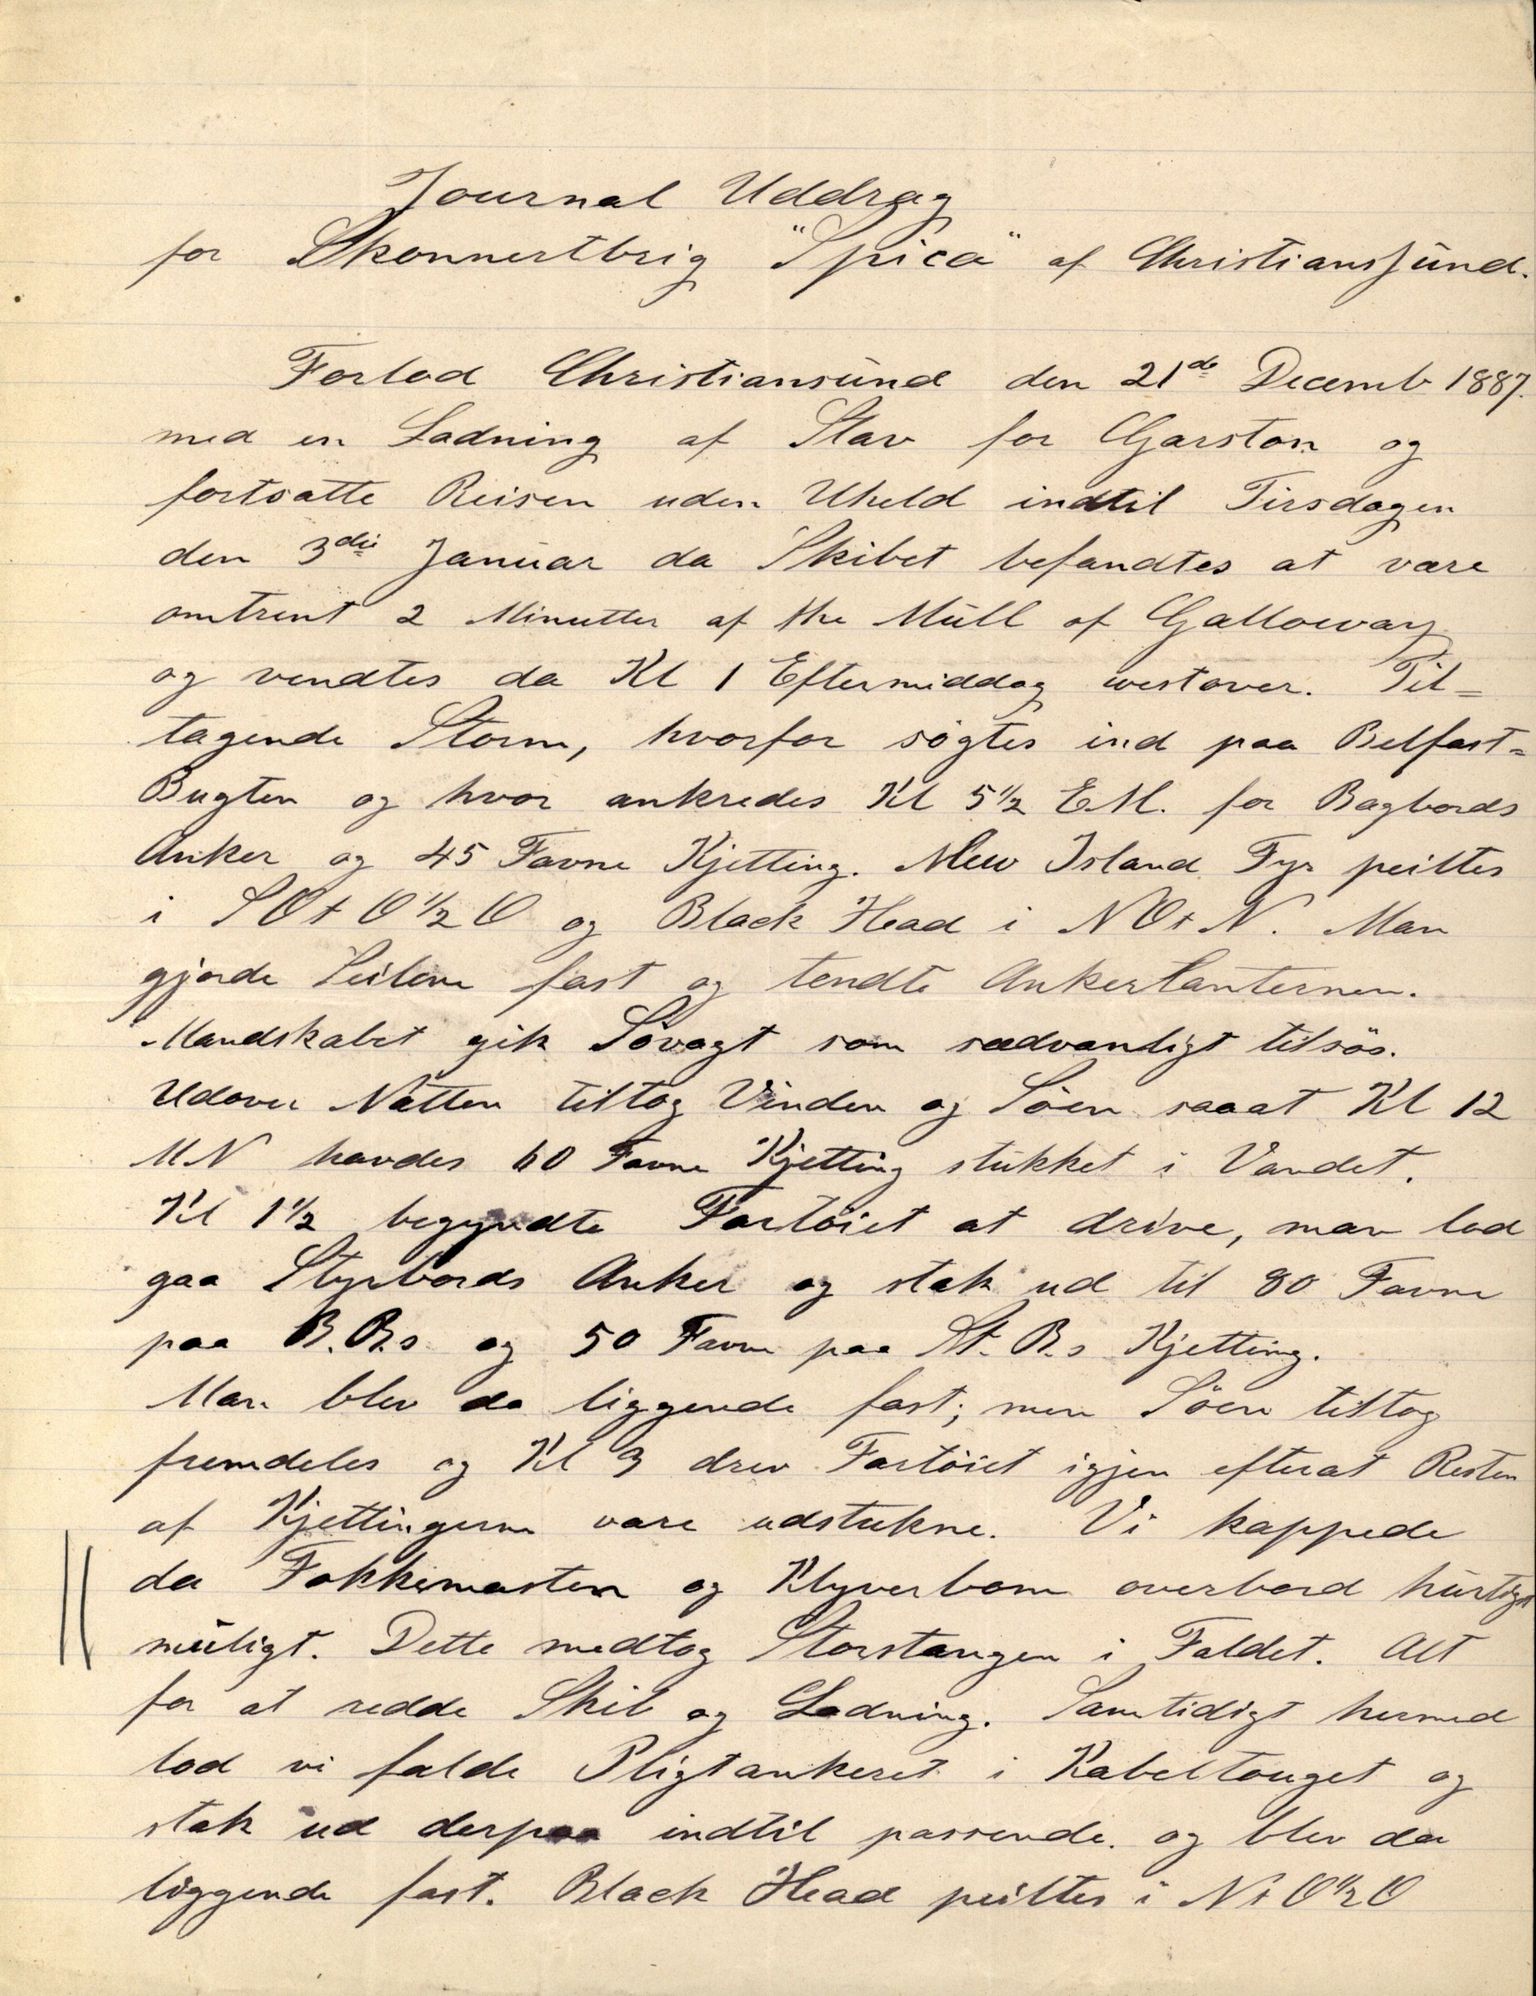 Journal Uddrag
for Skonnertbrig "Spica" af Christianssund.
Forlod Christiansund den 21de Decemb 1887.
med en Ladning af Stav for Garston og
fortsatte Reisen uden Uheld indtil Tirsdagen
den 3die Januar da Skibet befandtes at være
omtrent 2 Minutter af the Mull of Galloway
og vendtes da Kl 1 Eftermiddag westover. Til=
tagende Storm, hvorfor søgtes ind paa Belfast=
Bugten og hvor ankredes Kl 5 1/2 E.M. for Bagbords
Anker og 45 Favne Kjetting. Mew Island Fyr peiltes
i SO+O 1/2 O og Black Head i NO+N. Man
gjorde Seilene fast og tendte Ankerlanternen.
Mandskabet gik Søvagt som sædvanligt tilsøs.
Udover Natten tiltog Vinden og Søen saaat Kl 12
MN havdes 60 Favne Kjetting stukket i Vandet.
Kl 1 1/2 begyndte Fartöiet at drive, man lod
gaa Styrbords Anker og stak ud til 80 Favne
paa B.B.s og 50 Favne paa St.B.s Kjetting.
Man blev da liggende fast; men Söen tiltog
fremdeles og Kl 3 drev Fartöiet igjen efterat Resten
af Kjettingerne vare udstukne. Vi kappede
da Fokkemasten og Klyverbom overbord hurtigst
muligt. Dette medtog Storstangen i Faldet. Alt
for at redde Skib og Ladning. Samtidigt hermed
lod vi falde Pligtankeret i Kabeltouget og
stak ud derpaa indtil passende. og blev da
liggende fast. Black Head peiltes i N+O 1/2 O